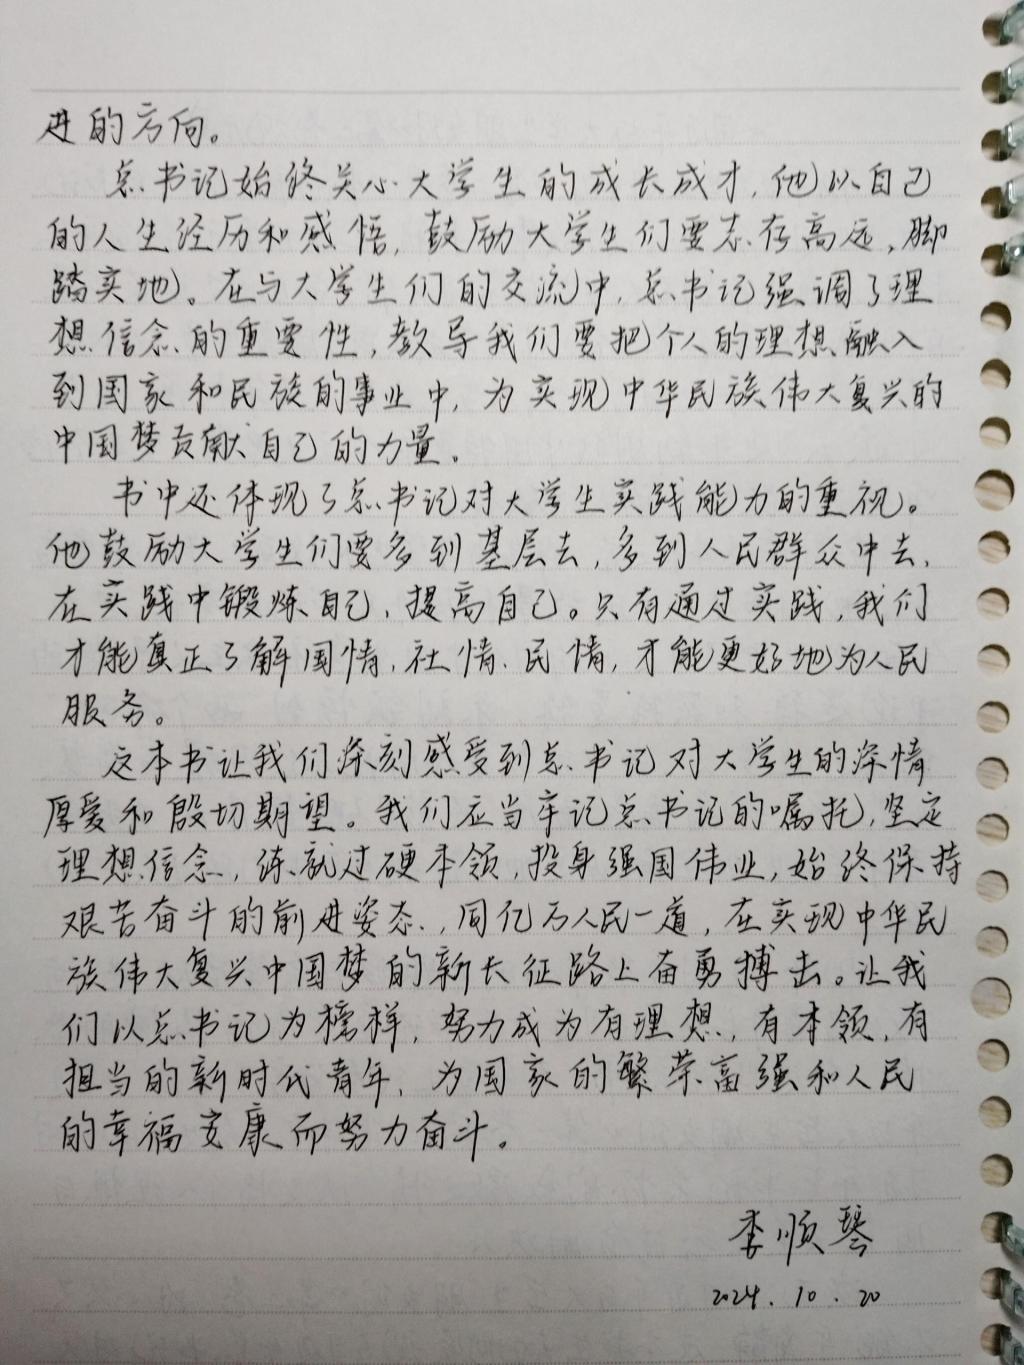 进的方向。
总书记始终关心大学生的成长成才,他以自己
的人生经历和感悟,鼓励大学生们要志存高远,脚
踏实地。在与大学生们的交流中,总书记强调了理
想信念的重要性,教导我们要把个人的理想融入
到国家和民族的事业中,为实现中华民族伟大复兴的
中国梦贡献自己的力量。
书中还体现了总书记对大学生实践能力的重视。
他鼓励大学生们要多到基层去,多到人民群众中去,
在实践中锻炼自己、提高自己。只有通过实践,我们
才能真正了解国情、社情、民情,才能更好地为人民
服务。
这本书让我们深刻感受到总书记对大学生的深情
厚爱和殷切期望。我们应当牢记总书记的嘱托,坚定
理想信念,练就过硬本领,投身强国伟业,始终保持
艰苦奋斗的前进姿态,同亿万人民一道,在实现中华民
族伟大复兴中国梦的新长征路上奋勇搏击。让我
们以总书记为榜样,努力成为有理想,有本领,有
担当的新时代青年,为国家的繁荣富强和人民
的幸福安康而努力奋斗。
李顺琴
2024.10.20